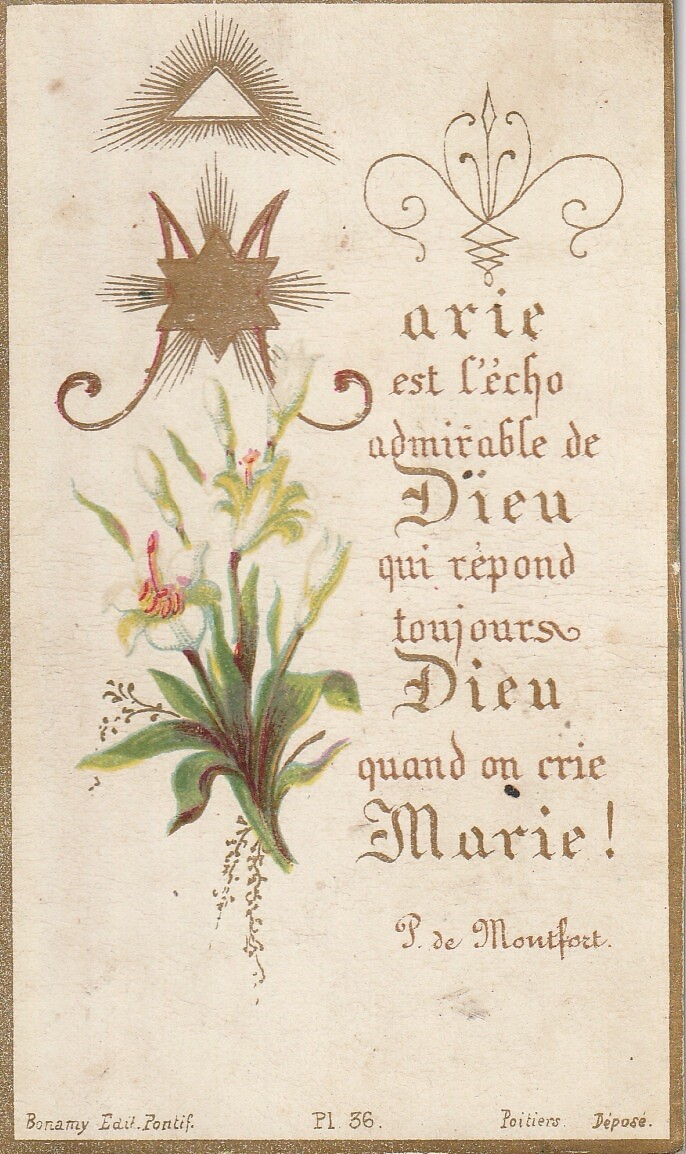 Marie
est l'écho
admirable de
Dieu
qui répond
toujours
Dieu
quand on crie
Marie!
P. de Montfort.
Bonamy Edit. Pontif. Pl. 36. Poitiers. Déposé.